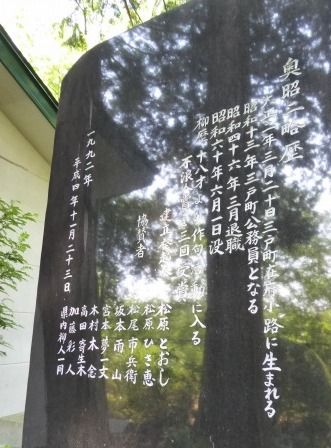 奥昭二略歴
大正 年三月二十日三戸町 小路に生まれる
昭和十三年三戸町公務員となる
昭和四十六年三月退職
昭和六十年六月一日没
柳歴 十八才 作句 動に入る
不浪人 三回受賞
建立
松原とおし
松原ひさ恵
協賛者
松尾市兵衛
坂本雨山
宮本夢一文
木村木念
高田寄生木
加藤彩人
県内柳人一同
一九九二年
平成四年十一月二十三日